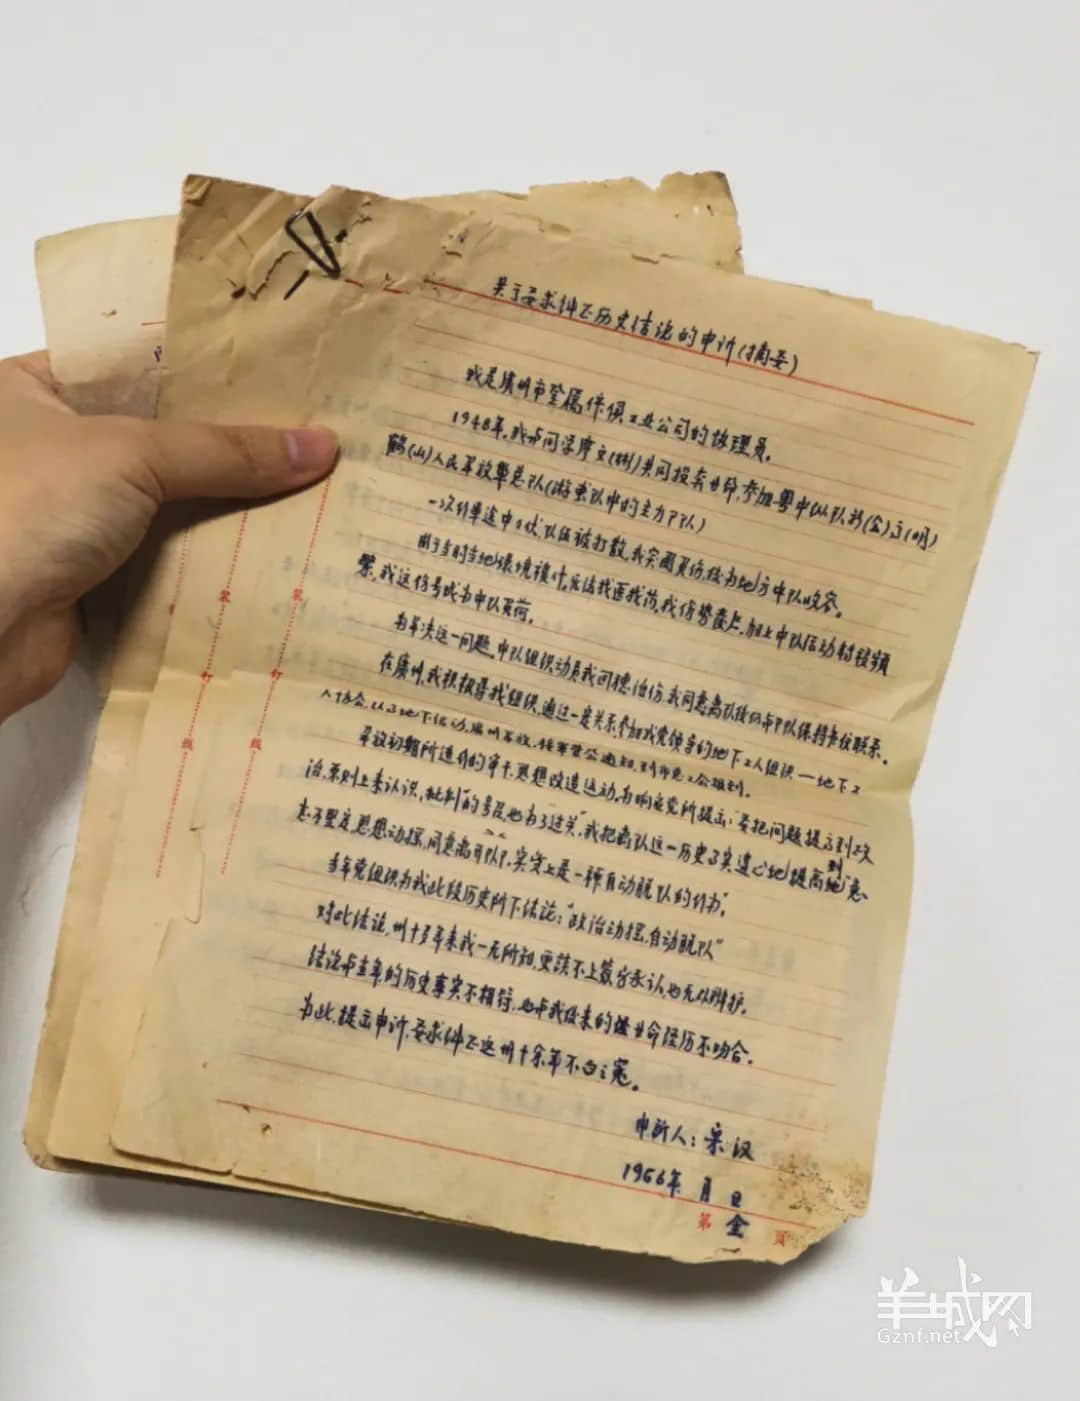 关于要求纠正历史结论的申诉(摘要)
我是广州市金属家俱工业公司的协理员。
1948年,我与同学 共同投奔革命,参加粤中纵队新(会)高(明)
鹤(山)人民解放军总队(游击队中的主力部队)
一次行军途中 伏,队伍被打散,我突围负伤,后为地方中队收容。
由于当时当地环境 ,无法找医找药,我伤势 ,加上中队活动 频
繁,我这伤号成为中队负荷。
为解决这一问题,中队组织动员我回穗治伤,我同意离队 保持 联系。
在广州,我积极寻找组织,通过一定关系,参加我党领导的地下工人组织——地下工
人协会,从事地下活动,广州解放,接军管会通知,到市总工会报到。
解放初期所进行的审干,思想改造运动,为响应党所提出:"要把问题提高到政
治,原则上来认识,批判"的号召,也为了过关",我把离队这一历史事实违心地提高到"意
志不坚定,思想动摇,同意离开部队,实质上是一种自动脱队的行为"。
当年党组织为我此段历史所下结论:"政治动摇,自动脱队"
对此结论,卅十多年来我一无所知,更谈不上签字承认,也无从辩护。
结论与当年的历史事实不相符,也与我后来的革命经历不吻合。
为此,提出申诉,要求纠正这卅十余年不白之冤。
申诉人:宋汉
1966年 月 日
第 全 页
装
钉
线
装
钉
线
羊城网
Gznf.net